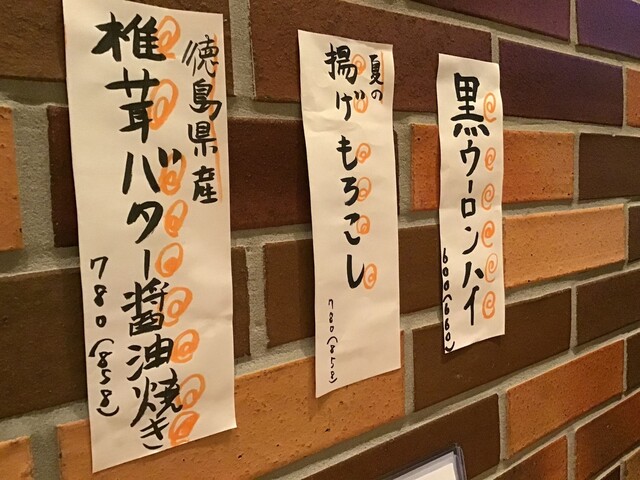 徳島県産
椎茸バター醤油焼き
780(858)
夏の
揚げもろこし
780(858)
黒ウーロンハイ
600(660)